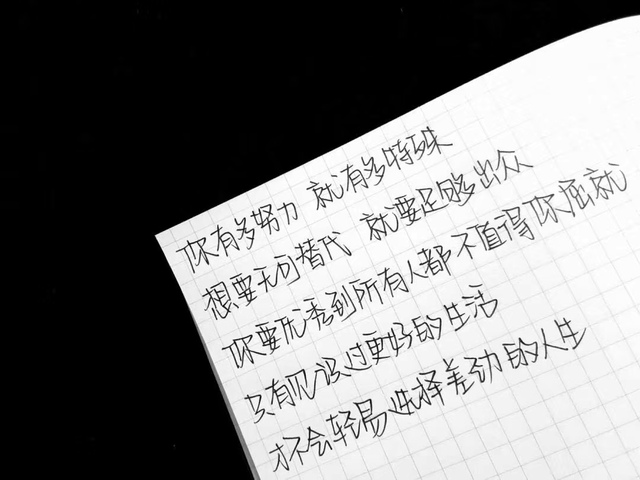 你有多努力 就有多特殊
想要无可替代 就要足够出众
你要优秀到所有人都不值得你屈就
只有见识过更好的生活
才不会轻易选择差劲的人生